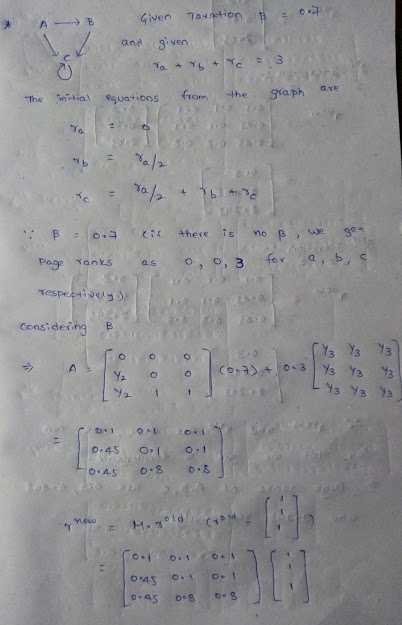 * A → B Given Taxation β = 0.7
and given
C
ra + rb + rc = 3
The initial equations from the graph are
ra = 0
rb = ra/2
rc = ra/2 + rb + rc
∵ β = 0.7 (if there is no β, we get
page ranks as 0, 0, 3 for a, b, c
respectively)
Considering β
⇒ A = [ 0 0 0 ] (0.7) + 0.3 [ 1/3 1/3 1/3 ]
[ 1/2 0 0 ] [ 1/3 1/3 1/3 ]
[ 1/2 1 1 ] [ 1/3 1/3 1/3 ]
= [ 0.1 0.1 0.1 ]
[ 0.45 0.1 0.1 ]
[ 0.45 0.8 0.8 ]
r^new = M. r^old (r^old = [ 1 1 1 ])
= [ 0.1 0.1 0.1 ] [ 1 ]
[ 0.45 0.1 0.1 ] [ 1 ]
[ 0.45 0.8 0.8 ] [ 1 ]